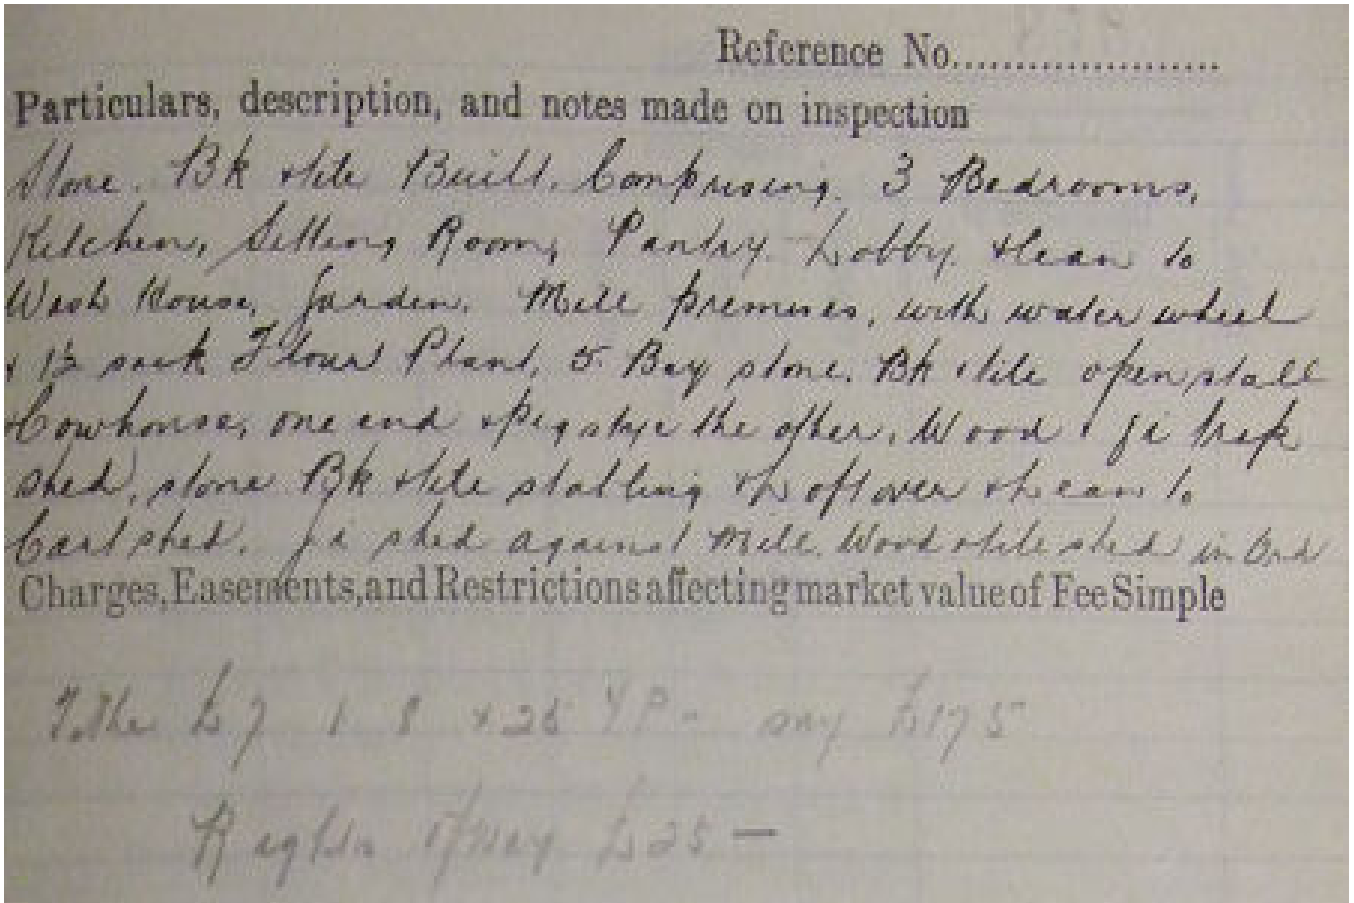 Reference No......................
Particulars, description, and notes made on inspection
Stone. Bk & tile Built. Comprising. 3 Bedrooms,
Kitchen, Sitting Room, Pantry Lobby & lean to
Wash House, Garden. Mill premises, with water wheel
& 1½ sack Flour Plant. 5 Bay stone. Bk & tile open stall
Cowhouse, one end & Pigstye the other. Wood & Gi
shed, stone Bk & tile stabling & Loft over & Lean to
Cart shed. Gi shed against Mill. Wood & tile shed in Ord
Charges, Easements, and Restrictions affecting market value of Fee Simple
Tithe £7 1 8 x 25 YP - say £175
Rights of way £25 —